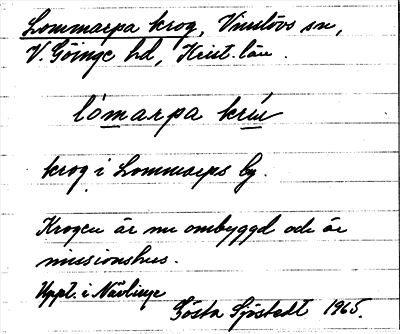 Lommarpa krog, Vinslövs sn,
V. Göinge hd, Krist. län.
lómarpa krú
krog i Lommarps by.
Krogen är nu ombyggd och är
missionshus.
Uppt. i Nävlinge
Gösta Sjöstedt 1965.